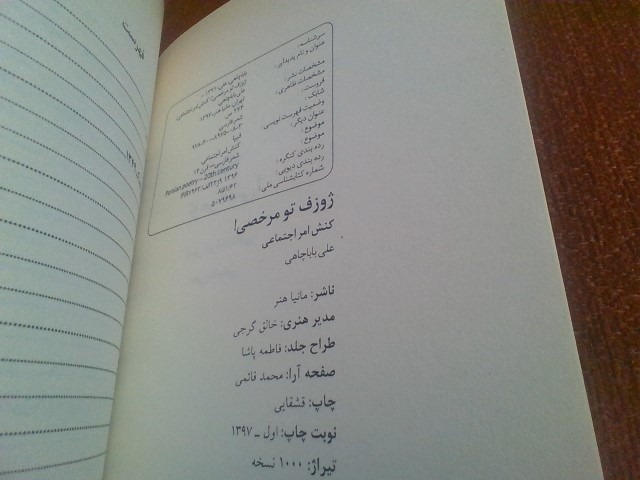 فهرست
سرشناسه:
عنوان و نام پدیدآور:
مشخصات نشر:
مشخصات ظاهری:
فروست:
شابک:
وضعیت فهرست نویسی:
عنوان دیگر:
موضوع:
موضوع:
رده بندی کنگره:
رده بندی دیویی:
شماره کتابشناسی ملی:
علی باباچاهی
شعر فارسی
فیپا
کنش امر اجتماعی
شعر فارسی -- قرن ۱۴
Persian poetry -- 20th century
۵۰۷۹۶۹۸
ژوزف تو مرخصی!
کنش امر اجتماعی
علی باباچاهی
ناشر: مانیا هنر
مدیر هنری: خالق گرجی
طراح جلد: فاطمه پاشا
صفحه آرا: محمد قائمی
چاپ: قشقایی
نوبت چاپ: اول ــ ۱۳۹۷
تیراژ: ۱۰۰۰ نسخه